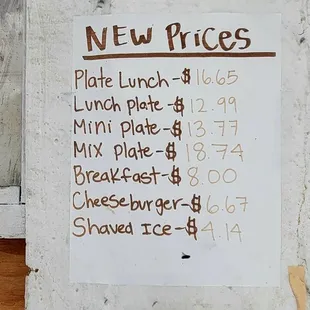 New Prices
Plate Lunch-$16.65
Lunch plate-$12.99
Mini plate-$13.77
Mix plate-$18.74
Breakfast-$8.00
Cheeseburger-$6.67
Shaved Ice-$4.14